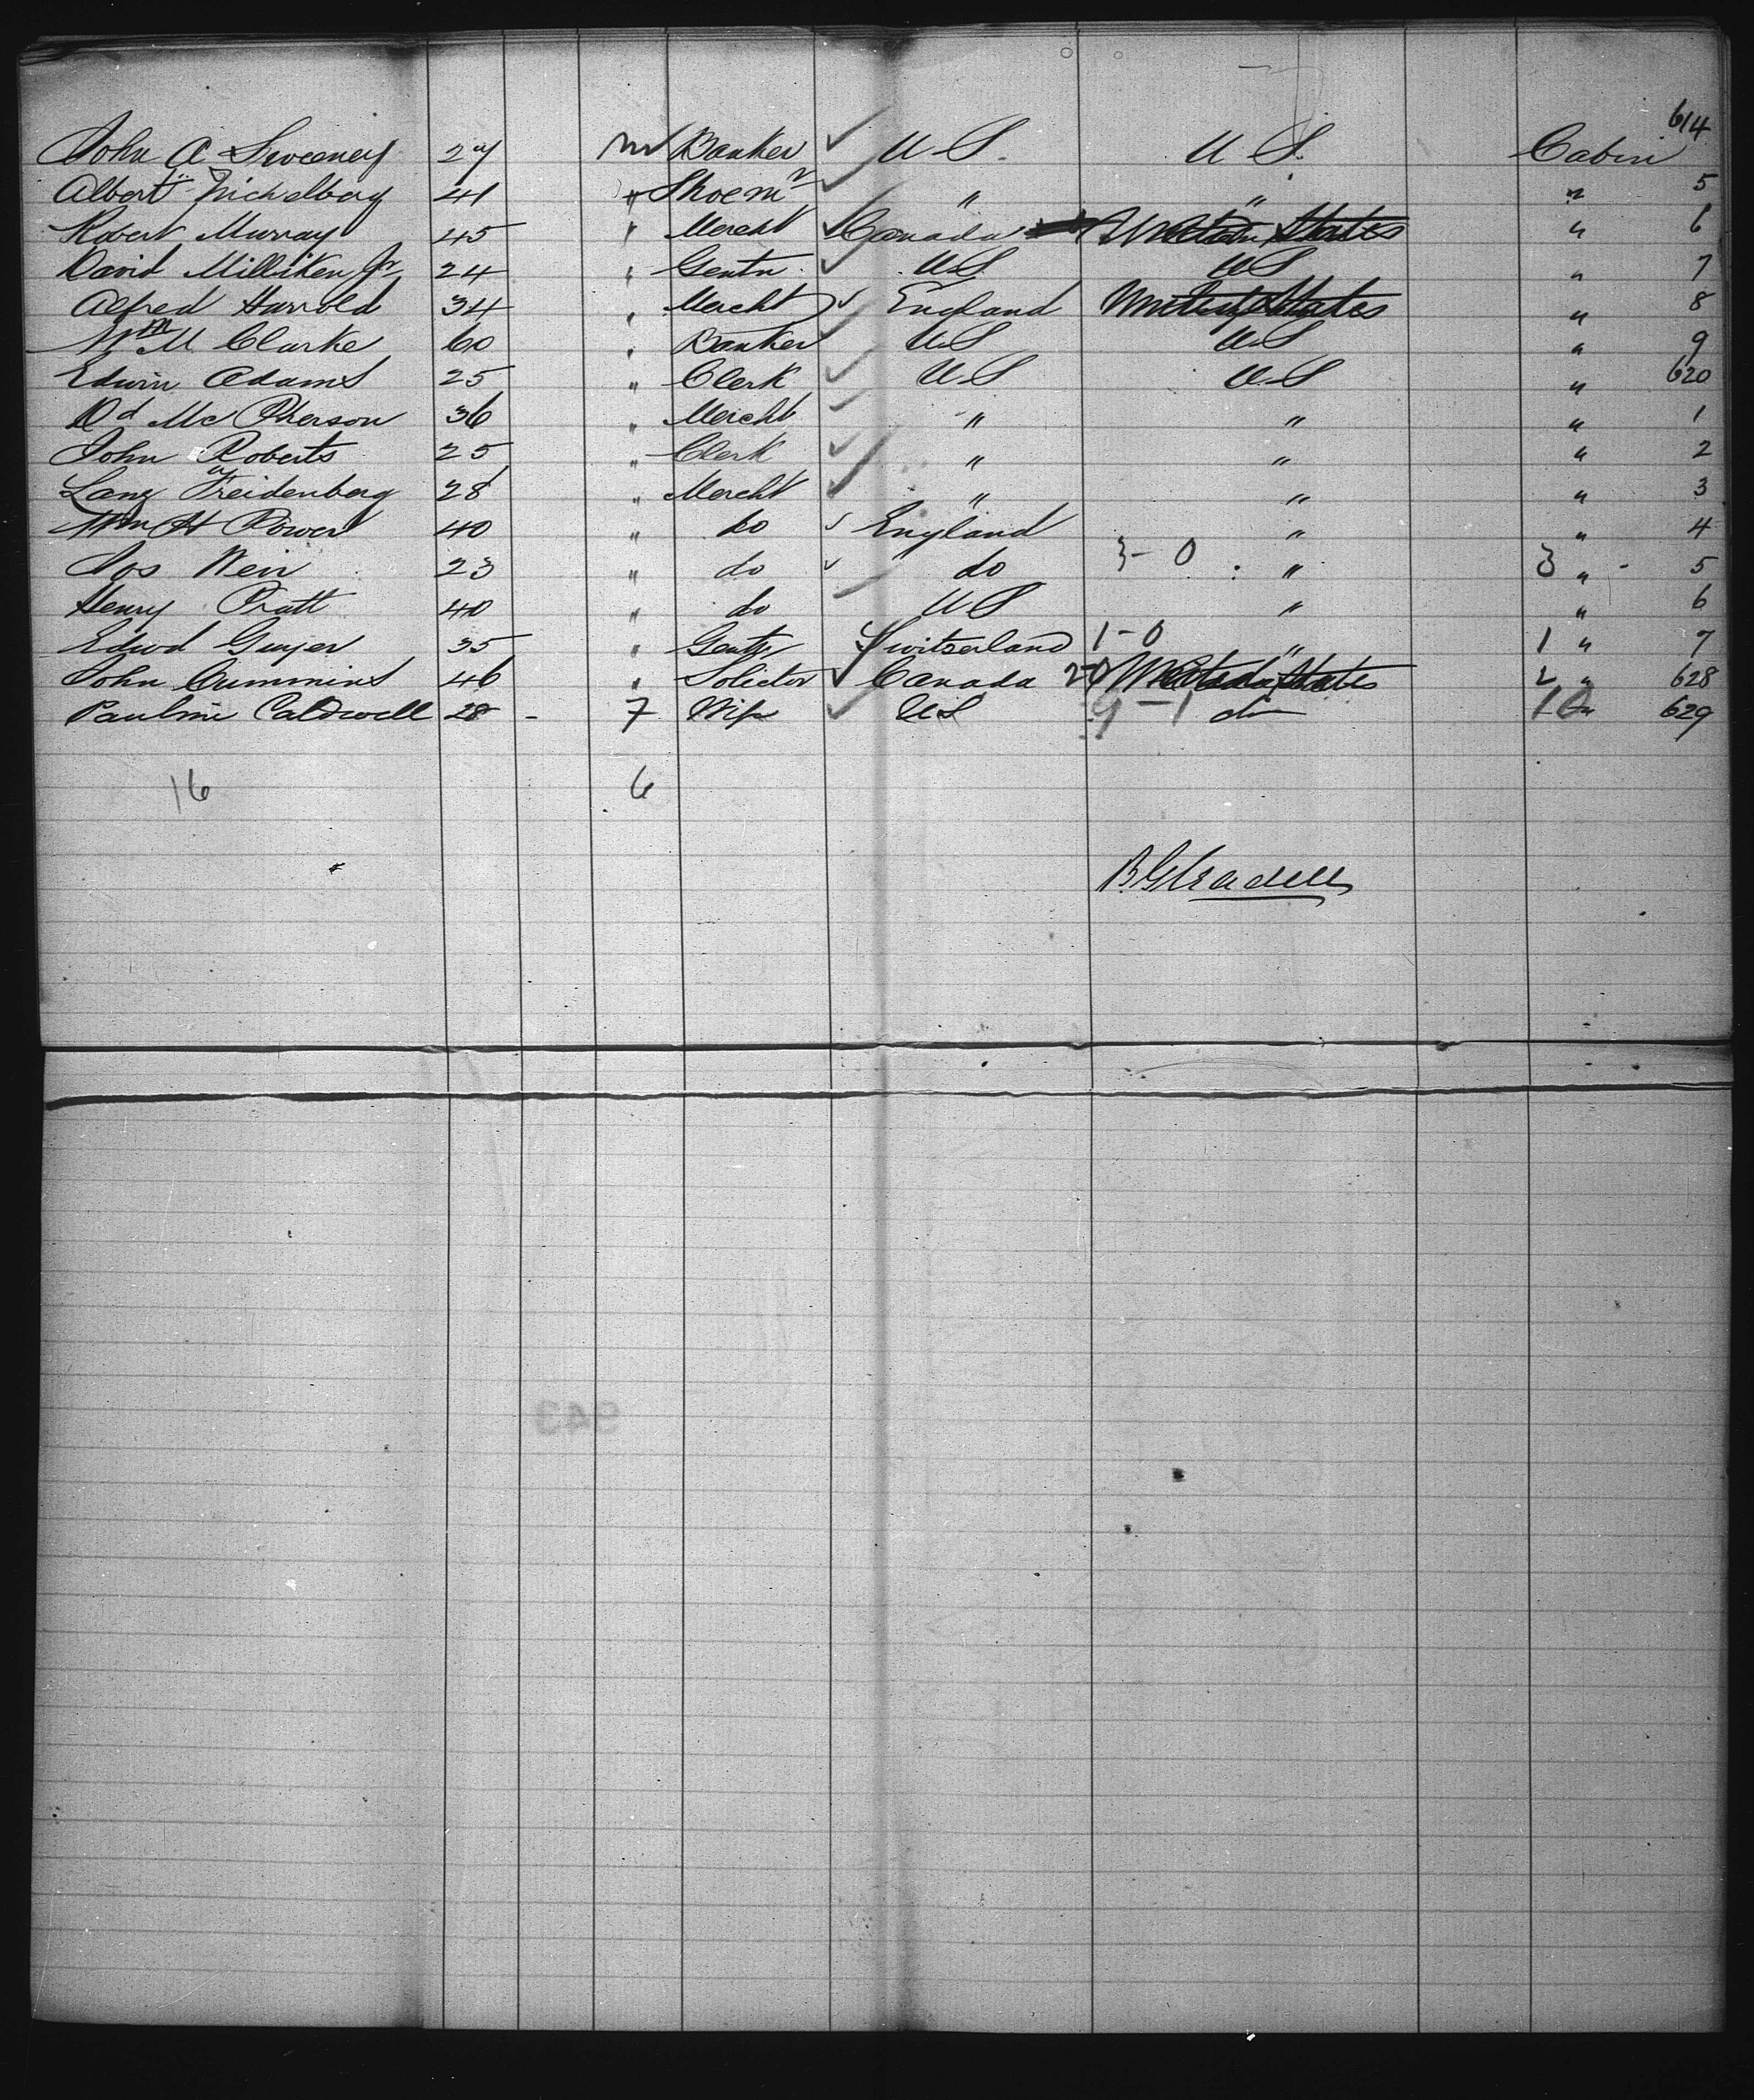 614
John A Sweeney 27 m Banker U S. U S. Cabin
Albert Michelberg 41 " Shoemr " " " 5
Robert Murray 45 " Mercht Canada United States " 6
David Milliken Jr 24 " Gentn. U.S. U S " 7
Alfred Harrold 34 " Mercht England United States " 8
Wm M. Clarke 60 " Banker U.S U.S " 9
Edwin Adams 25 " Clerk U.S U.S " 620
Dd Mc Pherson 36 " Mercht " " " 1
John Roberts 25 " Clerk " " " 2
Freidenberg 28 " Mercht " " " 3
Wm H Power 40 " do England " " 4
Jos Weir 23 " do do 3-0 " 3 " 5
Henry Pratt 40 " do U S " " 6
Edwd Guyer 35 " Switserland 1-0 " 1 " 7
John Cummins 46 " Solictor Canada 2-0 United States 2 " 628
Pauline Caldwell 28 - 7 Wife U.S 9-1 do 10 " 629
16 6
943